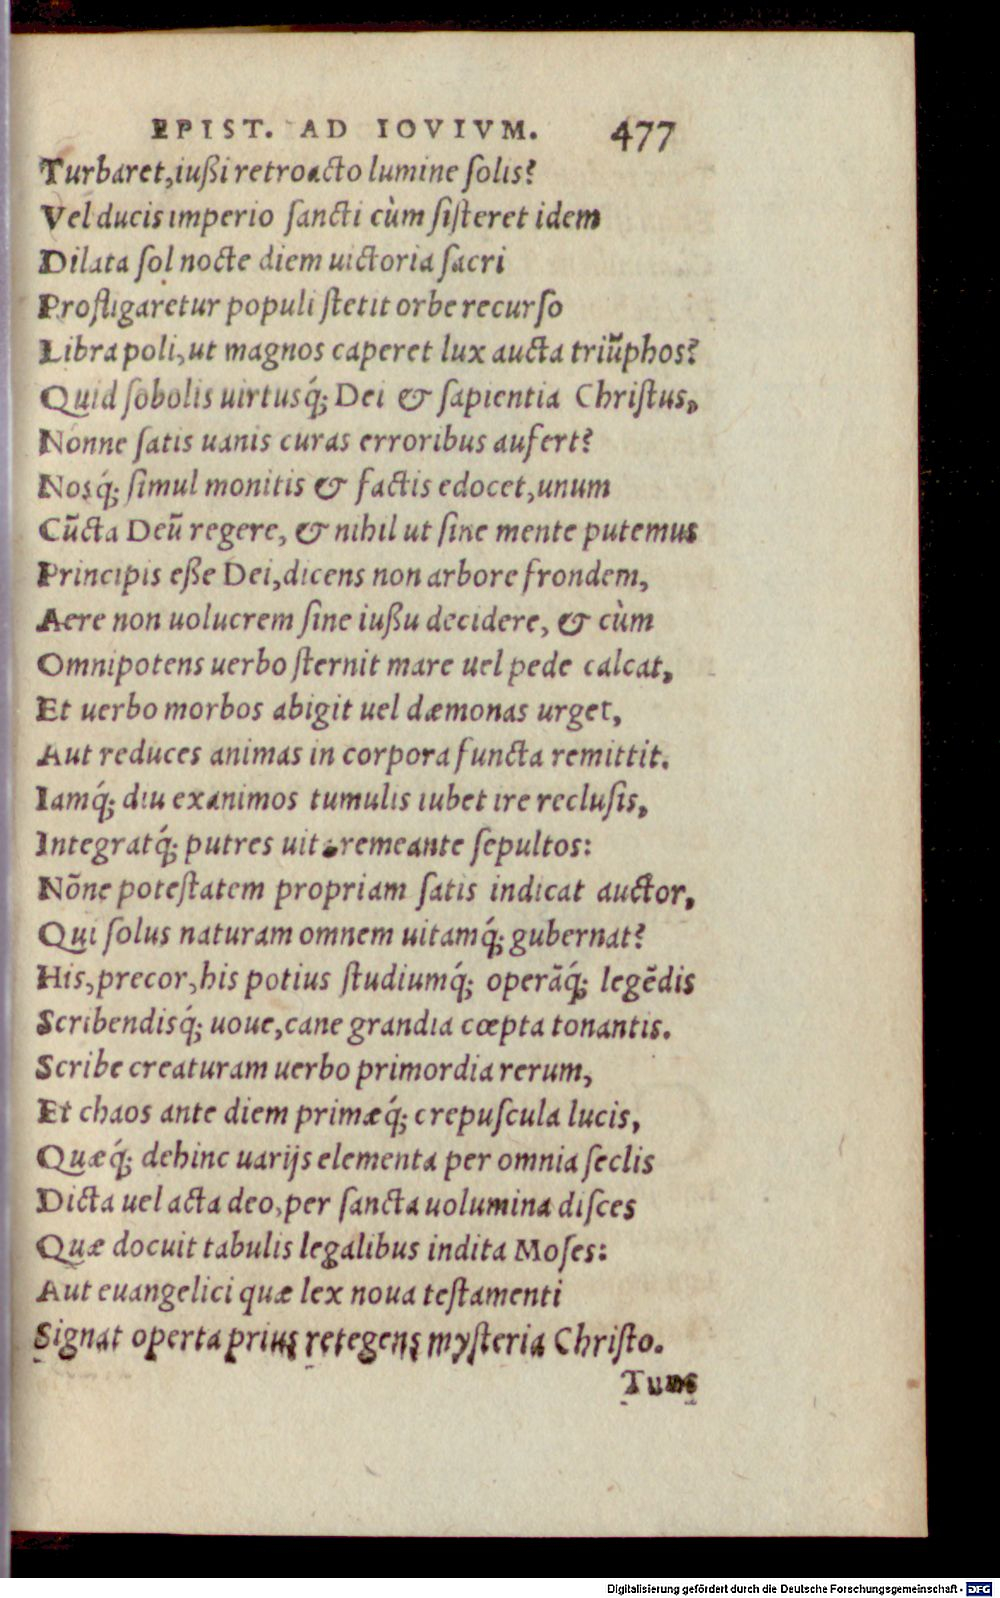 EPIST. AD IOVIVM. 477
Turbaret, iußi retroacto lumine ſolis?
Vel ducis imperio ſancti cùm ſiſteret idem
Dilata ſol nocte diem uictoria ſacri
Proſtigaretur populi ſtetit orbe recurſo
Libra poli, ut magnos caperet lux aucta triũphos?
Quid ſobolis uirtusq́; Dei & ſapientia Chriſtus,
Nonne ſatis uanis curas erroribus aufert?
Nosq́; ſimul monitis & factis edocet, unum
Cũcta Deũ regere, & nihil ut ſine mente putemus
Principis eße Dei, dicens non arbore frondem,
Aere non uolucrem ſine iußu decidere, & cùm
Omnipotens uerbo ſternit mare uel pede calcat,
Et uerbo morbos abigit uel dæmonas urget,
Aut reduces animas in corpora functa remittit.
Iamq́; diu exanimos tumulis iubet ire recluſis,
Integratq́; putres uita remeante ſepultos:
Nõne poteſtatem propriam ſatis indicat auctor,
Qui ſolus naturam omnem uitamq́; gubernat?
His, precor, his potius ſtudiumq́; operãq́; legẽdis
Scribendisq́; uoue, cane grandia cœpta tonantis.
Scribe creaturam uerbo primordia rerum,
Et chaos ante diem primæq́; crepuſcula lucis,
Quæq́; dehinc uarijs elementa per omnia ſeclis
Dicta uel acta deo, per ſancta uolumina diſces
Quæ docuit tabulis legalibus indita Moſes:
Aut euangelici quæ lex noua teſtamenti
Signat operta prius retegens myſteria Chriſto.
Tunc
Digitalisierung gefördert durch die Deutsche Forschungsgemeinschaft - DFG